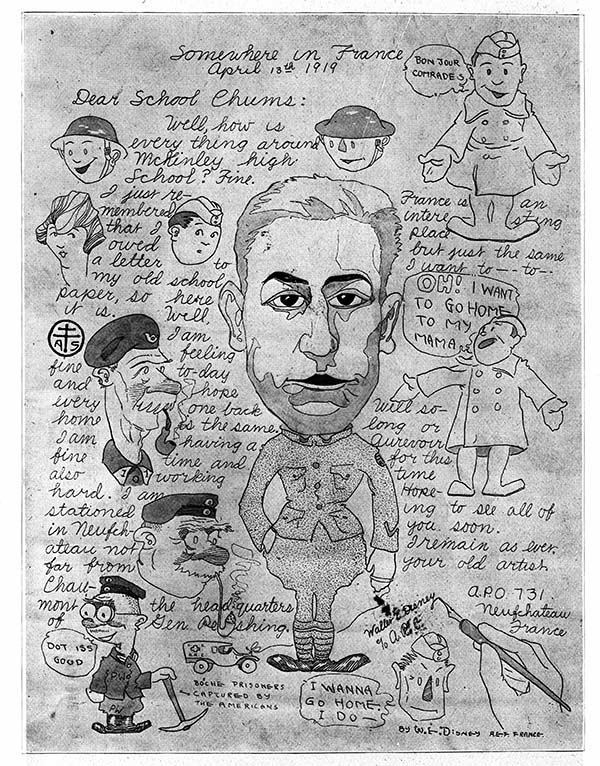 Somewhere in France
April 13th, 1919
BON JOUR
COMRADES
Dear School Chums:
Well, how is
every thing around
McKinley high
School? Fine.
I just re-
membered
that I
owed
a letter to
my old school
paper, so here
it is. Well,
I am
feeling
fine to-day
and hope
every one back
home is the same
I am having a
fine time and
also working
hard. I am
stationed
in Neufch-
ateau not
far from
Chau-
mont the head quarters
of Gen Pershing.
France is an
interesting
place
but just the same
I want to -- to-
OH! I WANT
TO GO HOME
TO MY
MAMA
Well so-
long or
Aurevoir
for this
time
Hope-
ing to see all of
you soon.
I remain as ever,
your old artist
Walter E Disney
A.P.O. 731
Neufchateau
France
A S
DOT ISS
GOOD
PW
PW
BOCHE PRISONERS
CAPTURED BY
THE AMERICANS
I WANNA
GO HOME
I DO-
BY W.E. DISNEY A.E.F. FRANCE.